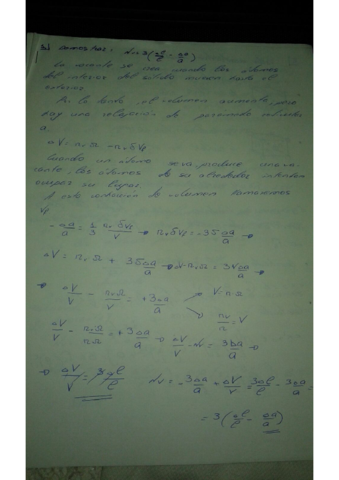 3) Demostrar: Nv = 3(Δl/l - Δa/a)
La vacante se crea cuando los átomos
del interior del sólido migran hacia el
exterior
Por lo tanto, el volumen aumenta, pero
hay una relajación de parámetro reticular
a.
ΔV = nvΩ - nvδVf
Cuando un átomo se va, produce una vacante, los átomos de su alrededor intentan
ocupar su lugar.
A esta variación de volumen llamaremos
Vf
-Δa/a = 1/3 nvδVf/V → nvδVf = -3δΔa/a →
ΔV = nvΩ + 3δΔa/a → ΔV - nvΩ = 3VΔa/a
→ ΔV/V - nvΩ/V = +3Δa/a → V = nΩ
→ nv/n = V
ΔV/V - nvΩ/nΩ = +3Δa/a → ΔV/V - N = 3Δa/a →
→ ΔV/V = 3Δl/l Nv = -3Δa/a + ΔV/V = 3Δl/l - 3Δa/a =
= 3(Δl/l - Δa/a)